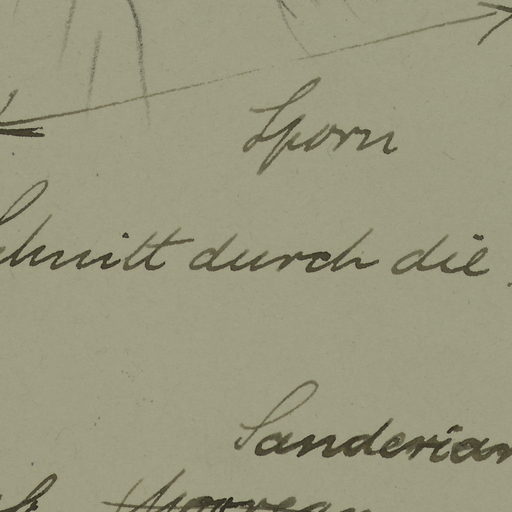 Sporn
Schnitt durch die
Sanderian